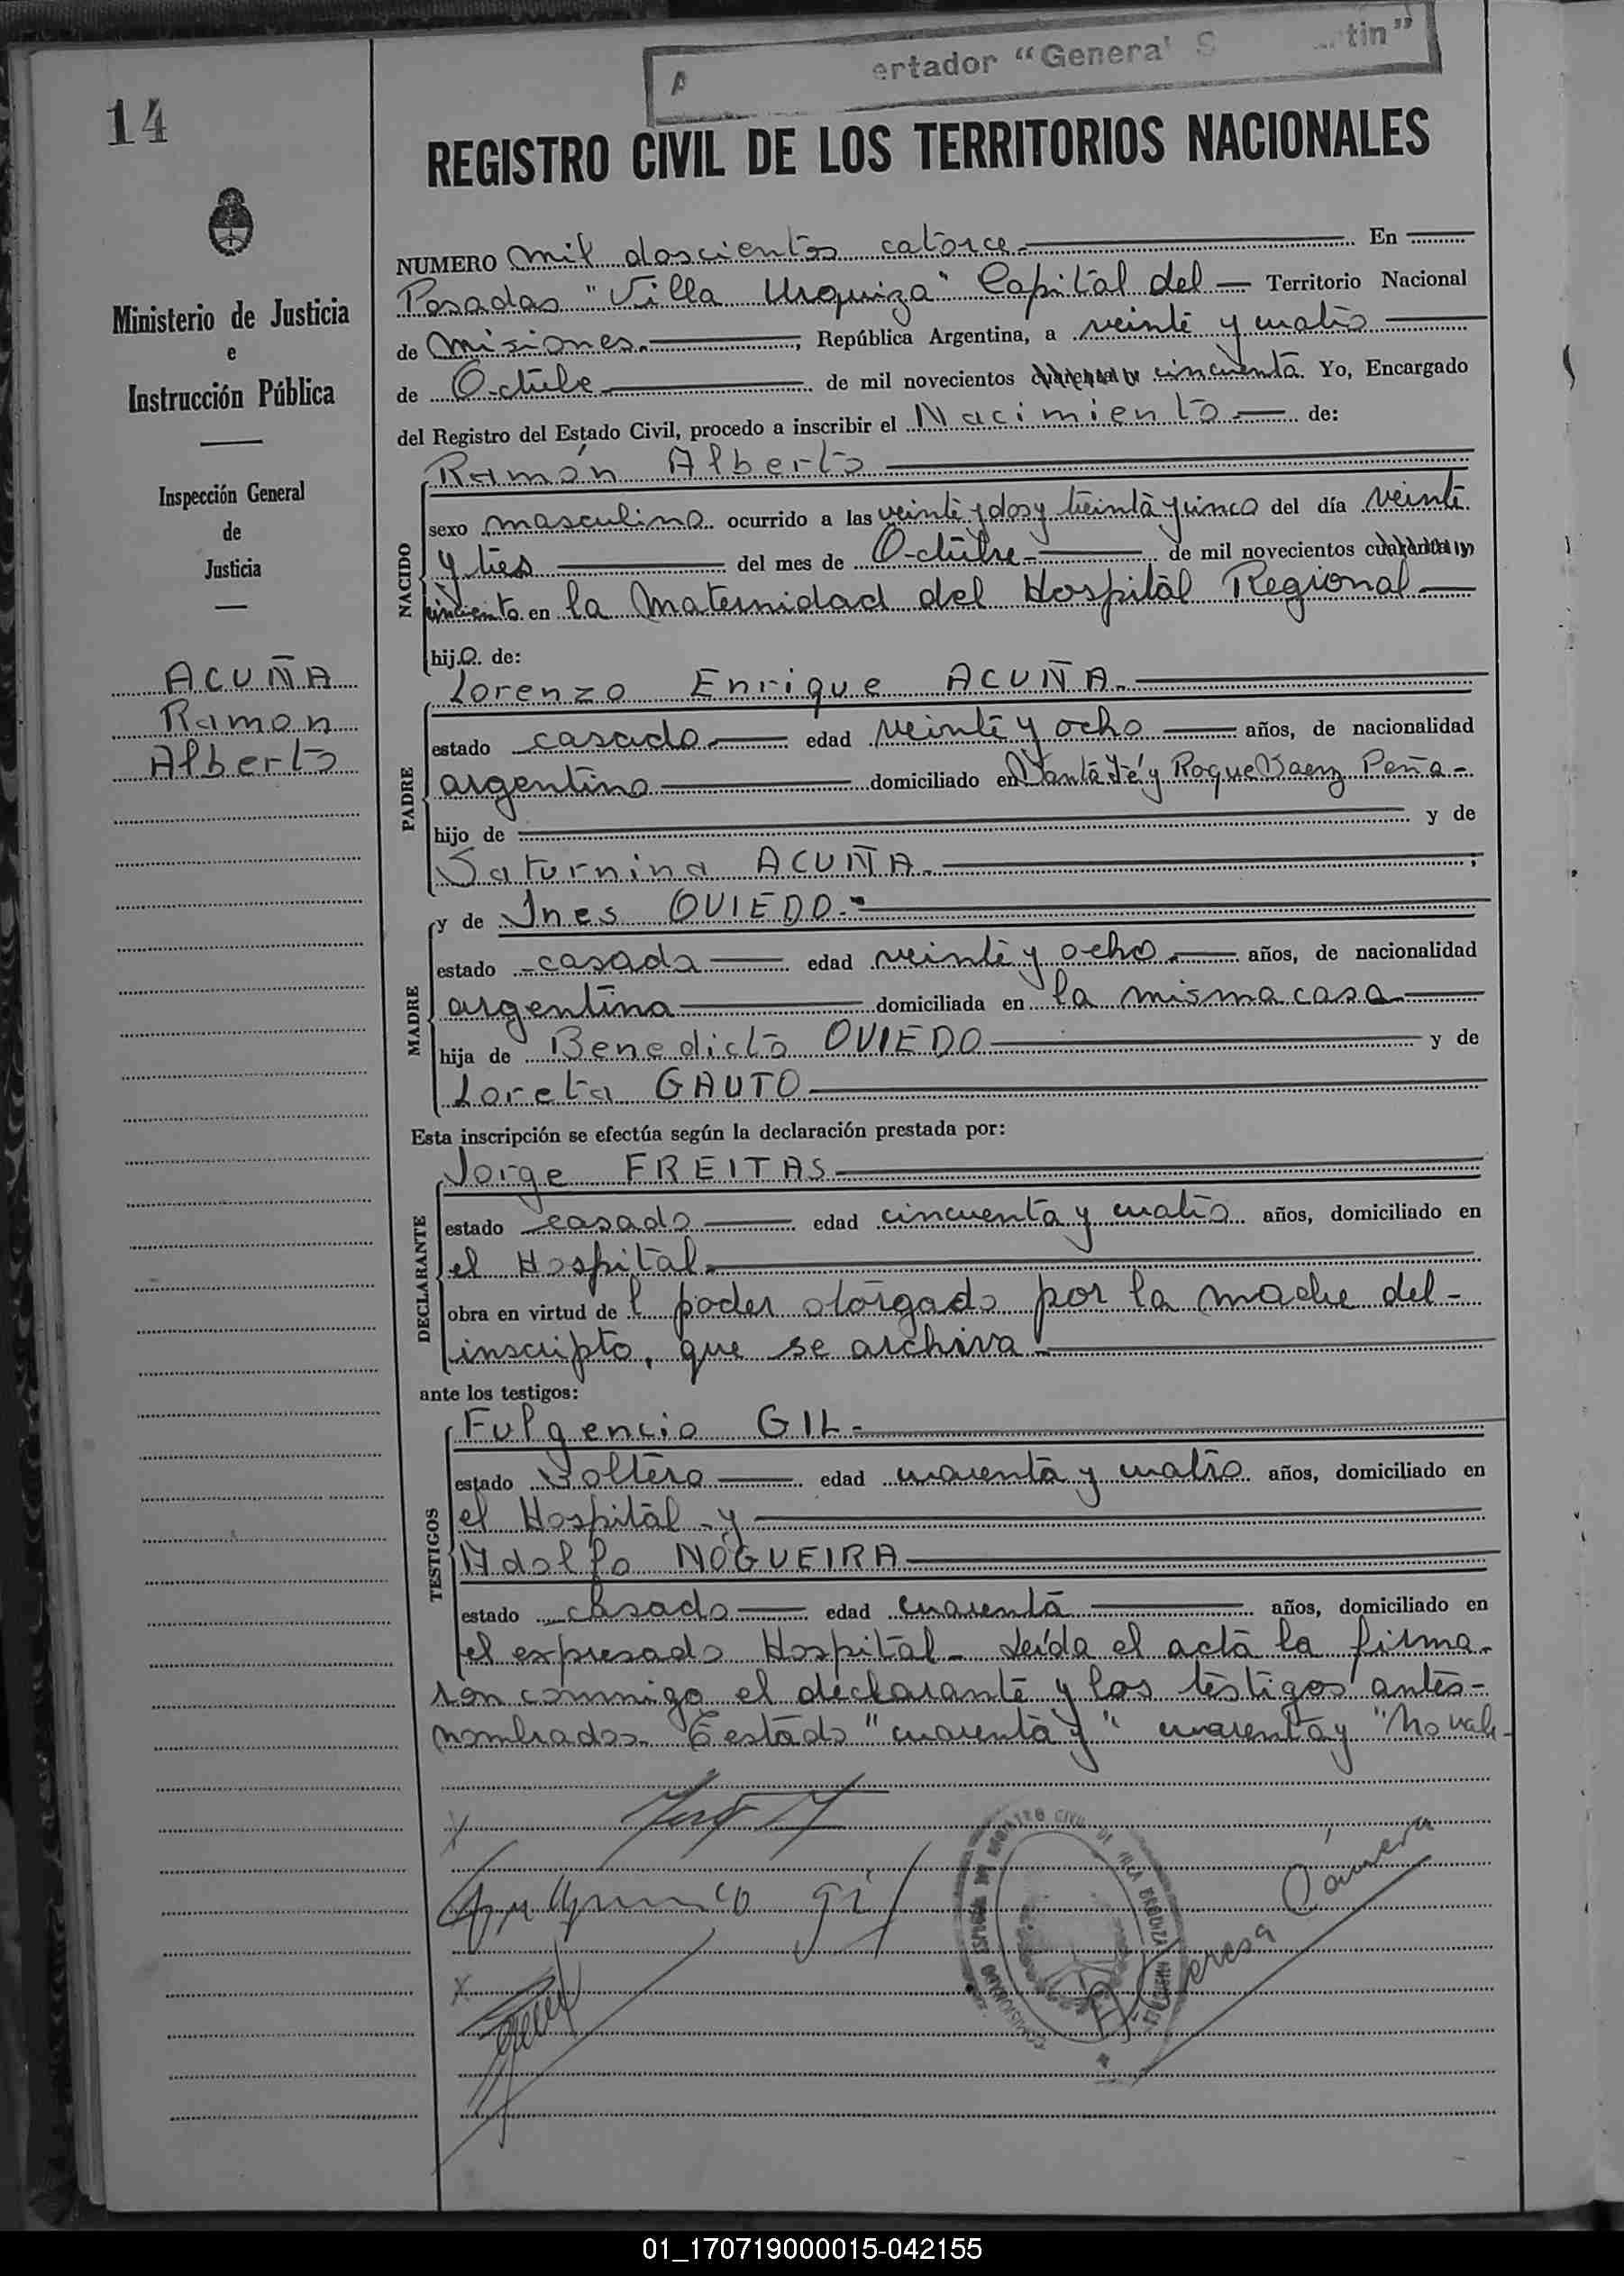 14
A ertador "General S tin"
REGISTRO CIVIL DE LOS TERRITORIOS NACIONALES
Ministerio de Justicia
e
Instrucción Pública
Inspección General
de
Justicia
ACUÑA
Ramon
Alberto
NUMERO mil doscientos catorce.- En
Posadas "Villa Urquiza" Capital del - Territorio Nacional
de Misiones.- , República Argentina, a veinte y cuatro
de Octubre de mil novecientos cuarenta y cincuenta. Yo, Encargado
del Registro del Estado Civil, procedo a inscribir el Nacimiento - de:
NACIDO
Ramón Alberto
sexo masculino ocurrido a las veinte y dos y treinta y cinco del día veinte
y tres del mes de Octubre - de mil novecientos cuarenta y
cincuenta en la Maternidad del Hospital Regional
hijo de:
PADRE
Lorenzo Enrique ACUÑA.-
estado casado edad veinte y ocho años, de nacionalidad
argentino domiciliado en Santa Fé y Roque Saenz Peña -
hijo de y de
Saturnina ACUÑA.- ;
MADRE
y de Ines OVIEDO.-
estado casada edad veinte y ocho.- años, de nacionalidad
argentina domiciliada en la misma casa
hija de Benedicto OVIEDO y de
Loreta GAUTO
Esta inscripción se efectúa según la declaración prestada por:
DECLARANTE
Jorge FREITAS
estado casado edad cincuenta y cuatro años, domiciliado en
el Hospital.
obra en virtud del poder otorgado por la madre del -
inscripto, que se archiva -
ante los testigos:
TESTIGOS
Fulgencio GIL -
estado Soltero edad cuarenta y cuatro años, domiciliado en
el Hospital - y
Adolfo NOGUEIRA
estado casado edad cuarenta años, domiciliado en
el expresado Hospital - Leída el acta la firma-
ron conmigo el declarante y los testigos antes -
nombrados. Testado "cuarenta y" cuarenta y "No vale -
Fulgencio Gil
REGISTRO CIVIL DE
Teresa Cámera
01_170719000015-042155